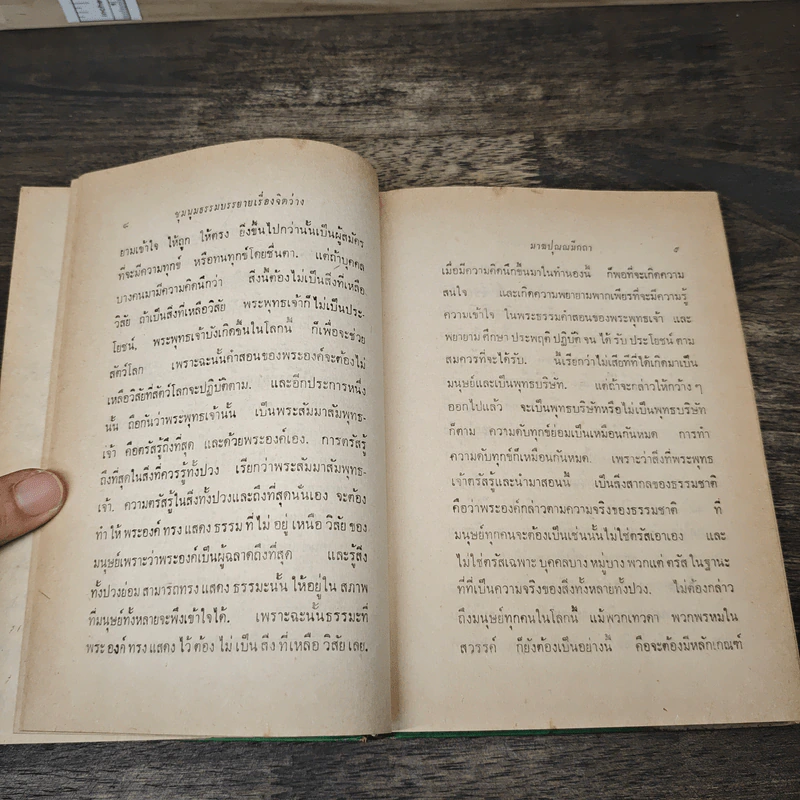 ๔
ชุมนุมธรรมบรรยายเรื่องจิตว่าง
ยามเข้าใจ ให้ถูก ให้ตรง ยิ่งขึ้นไปกว่านั้นเป็นผู้สมัคร
ที่จะมีความทุกข์ หรือทนทุกข์โดยชื่นตา. แต่ถ้าบุคคล
บางคนมามีความคิดนึกว่า สิ่งนี้ต้องไม่เป็นสิ่งที่เหลือ
วิสัย ถ้าเป็นสิ่งที่เหลือวิสัย พระพุทธเจ้าก็ไม่เป็นประ-
โยชน์. พระพุทธเจ้าบังเกิดขึ้นในโลกนี้ ก็เพื่อจะช่วย
สัตว์โลก เพราะฉะนั้นคำสอนของพระองค์จะต้องไม่
เหลือวิสัยที่สัตว์โลกจะปฏิบัติตาม. และอีกประการหนึ่ง
นั้น ถือกันว่าพระพุทธเจ้านั้น เป็นพระสัมมาสัมพุทธ-
เจ้า คือตรัสรู้ถึงที่สุด และด้วยพระองค์เอง. การตรัสรู้
ถึงที่สุดในสิ่งที่ควรรู้ทั้งปวง เรียกว่าพระสัมมาสัมพุทธ-
เจ้า. ความตรัสรู้ในสิ่งทั้งปวงและถึงที่สุดนั่นเอง จะต้อง
ทำให้ พระองค์ ทรง แสดง ธรรม ที่ ไม่ อยู่ เหนือ วิสัย ของ
มนุษย์เพราะว่าพระองค์เป็นผู้ฉลาดถึงที่สุด และรู้สิ่ง
ทั้งปวงย่อม สามารถทรง แสดง ธรรมะนั้น ให้อยู่ใน สภาพ
ที่มนุษย์ทั้งหลายจะพึงเข้าใจได้. เพราะฉะนั้นธรรมะที่
พระ องค์ ทรง แสดง ไว้ ต้อง ไม่ เป็น สิ่ง ที่ เหลือ วิสัย เลย.
มาฆปุณณมีกถา ๕
เมื่อมีความคิดนึกขึ้นมาในทำนองนี้ ก็พอที่จะเกิดความ
สนใจ และเกิดความพยายามพากเพียรที่จะมีความรู้
ความเข้าใจ ในพระธรรมคำสอนของพระพุทธเจ้า และ
พยายาม ศึกษา ประพฤติ ปฏิบัติ จน ได้ รับ ประโยชน์ ตาม
สมควรที่จะได้รับ. นี้เรียกว่าไม่เสียทีที่ได้เกิดมาเป็น
มนุษย์และเป็นพุทธบริษัท. แต่ถ้าจะกล่าวให้กว้าง ๆ
ออกไปแล้ว จะเป็นพุทธบริษัทหรือไม่เป็นพุทธบริษัท
ก็ตาม ความดับทุกข์ย่อมเป็นเหมือนกันหมด การทำ
ความดับทุกข์ก็เหมือนกันหมด. เพราะว่าสิ่งที่พระพุทธ
เจ้าตรัสรู้และนำมาสอนนี้ เป็นสิ่งสากลของธรรมชาติ
คือว่าพระองค์กล่าวตามความจริงของธรรมชาติ ที่
มนุษย์ทุกคนจะต้องเป็นเช่นนั้นไม่ใช่ตรัสเอาเอง และ
ไม่ใช่ตรัสเฉพาะ บุคคลบาง หมู่บาง พวกแต่ ตรัส ในฐานะ
ที่ที่เป็นความจริงของสิ่งทั้งหลายทั้งปวง. ไม่ต้องกล่าว
ถึงมนุษย์ทุกคนในโลกนี้ แม้พวกเทวดา พวกพรหมใน
สวรรค์ ก็ยังต้องเป็นอย่างนี้ คือจะต้องมีหลักเกณฑ์